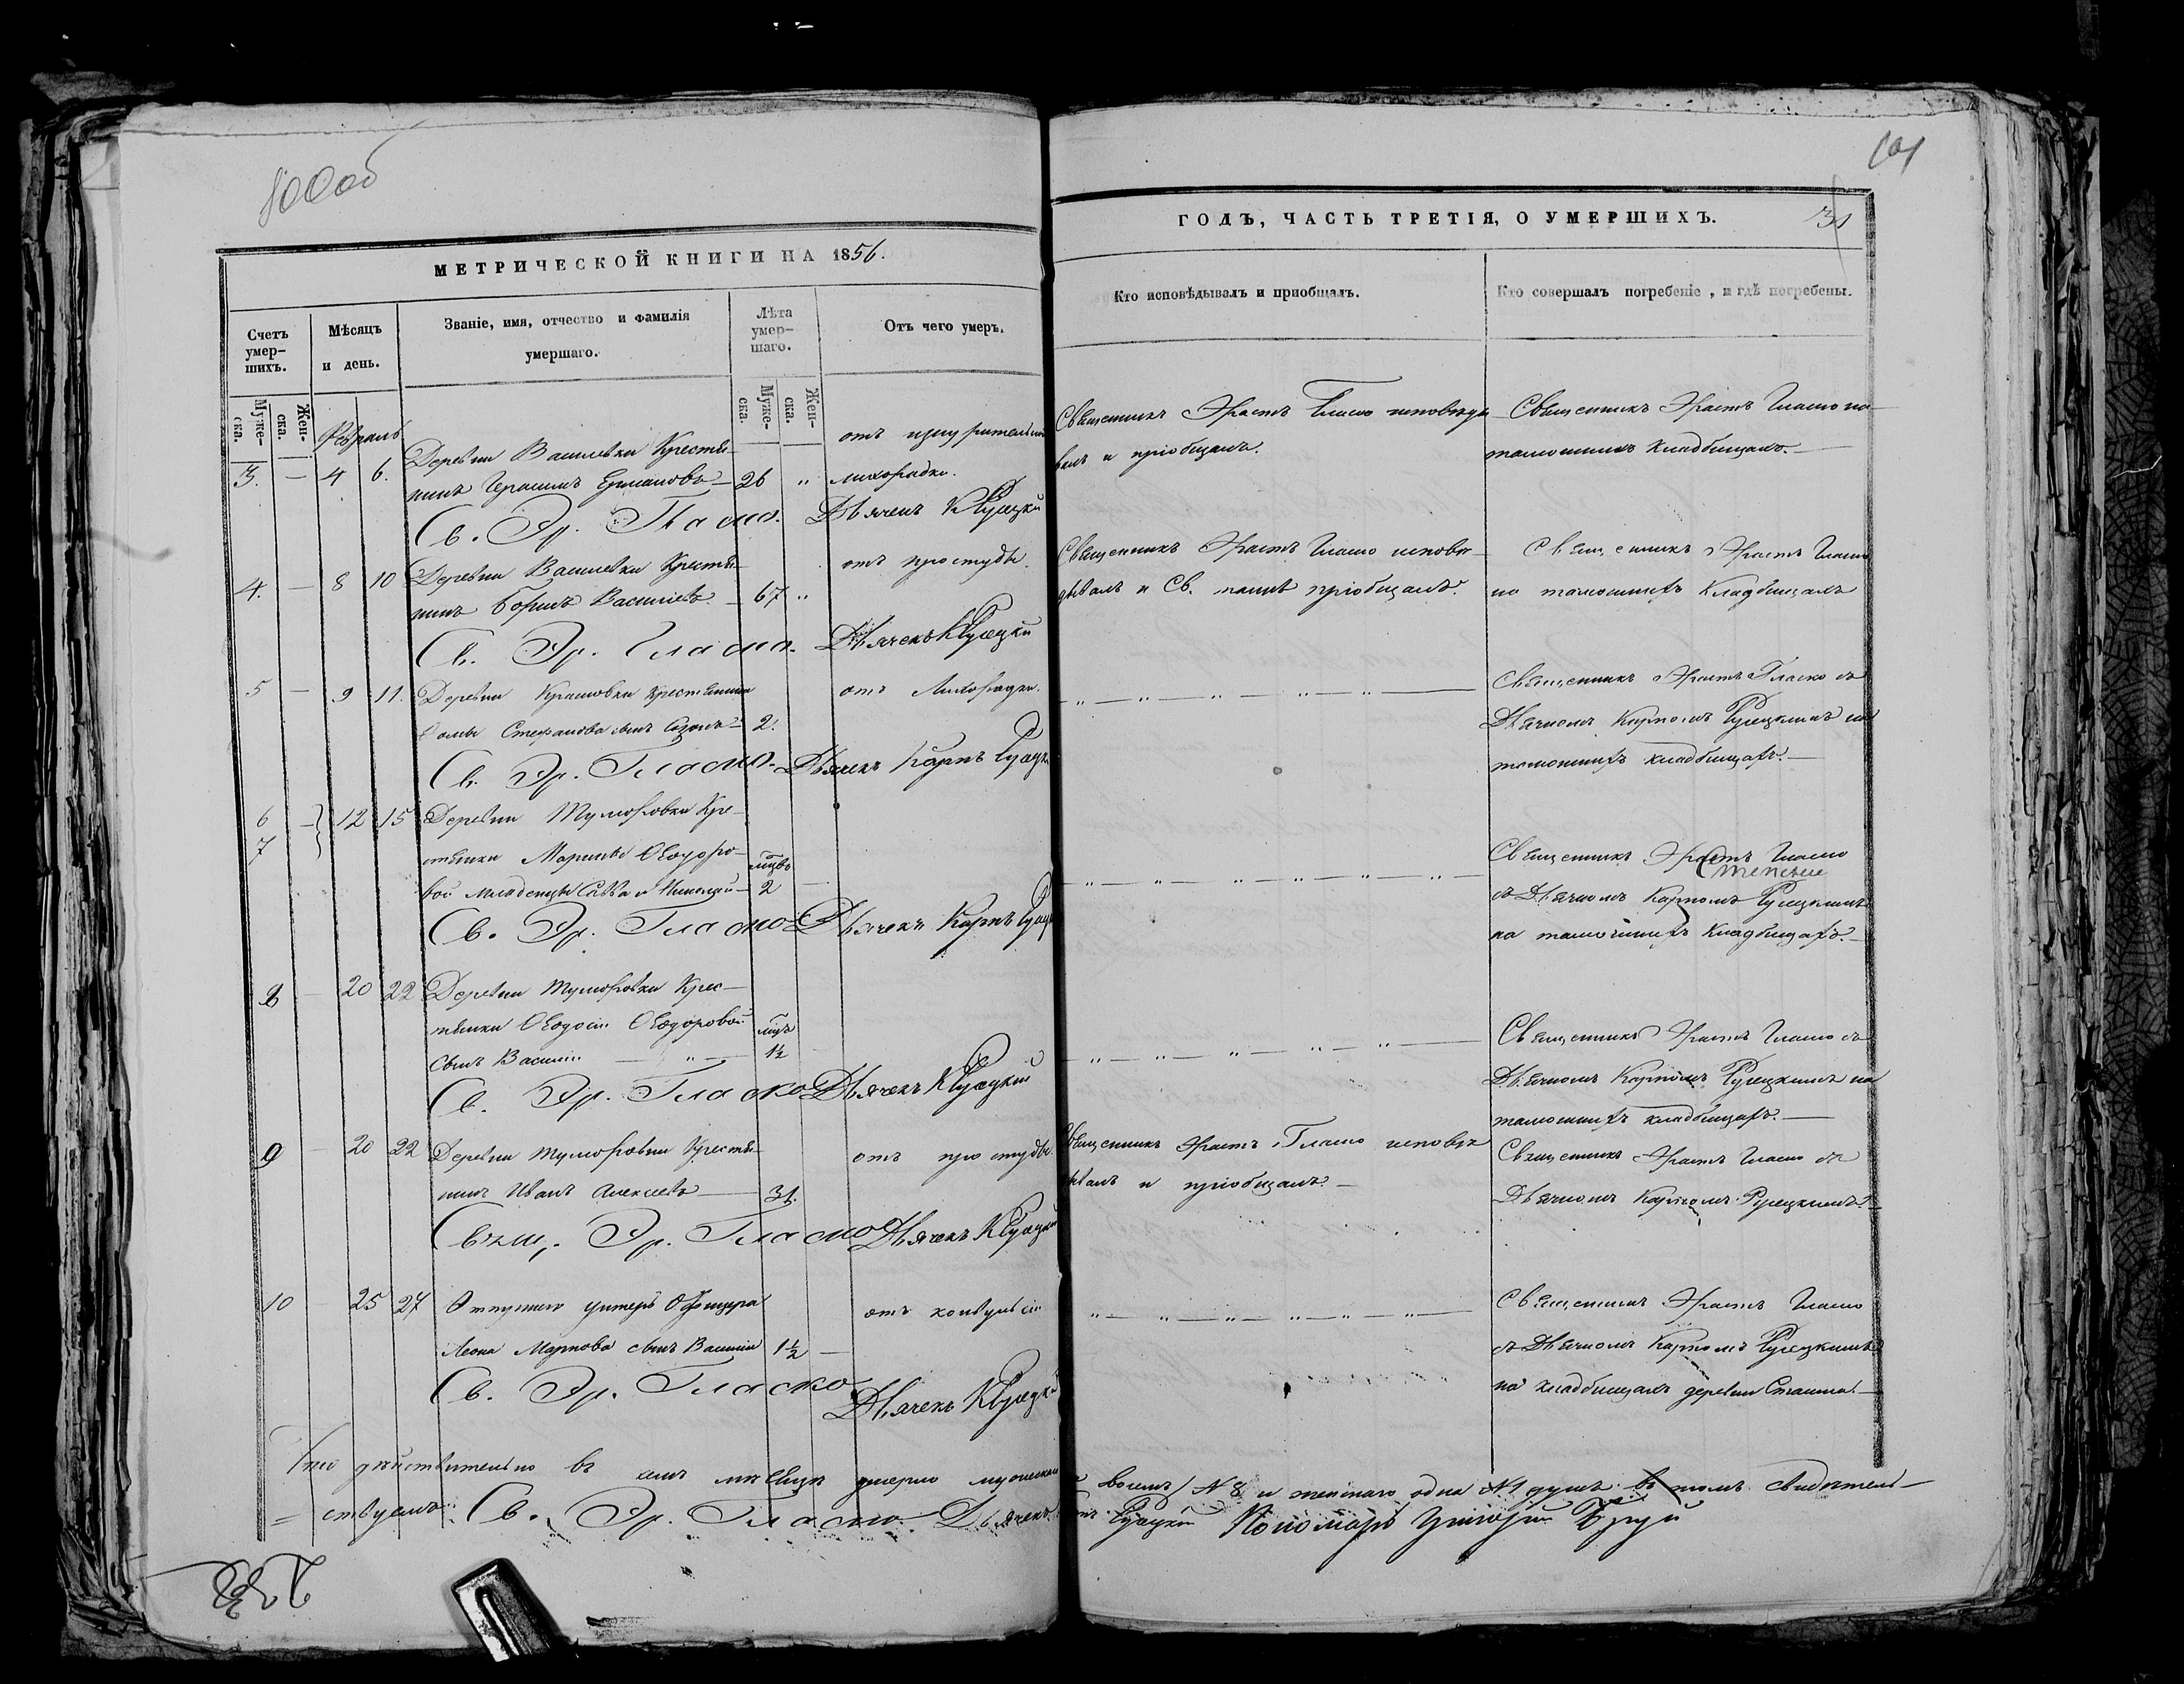 100об
МЕТРИЧЕСКОЙ КНИГИ НА 1856.
Счетъ умер-
шихъ.
Мѣсяцъ
и день.
Званіе, имя, отчество и фамилія
умершаго.
Лѣта
умер-
шаго.
Отъ чего умеръ.
Муже-
ска.
Жен-
ска.
Муже-
ска.
Жен-
ска.
Февраль
3. — 4 6. Деревни Василевки Крестья-
нинъ Герасимъ Ермановъ — 26 „
отъ изнурительной
лихорадки.
Св. Эр. Гласко. Дьячекъ К Руцкій
4. — 8 10 Деревни Василевки Крестья-
нинъ Борисъ Васильевъ — 67 „
отъ простуды.
Св. Эр. Гласко. Дьячекъ К Руцкій
5 — 9 11. Деревни Крашовки Крестьянина
Фомы Стефанова сынъ — 2.
отъ Лихорадки.
Св. Эр. Гласко. Дьячекъ Карпъ
6 — 12 15 Деревни Тумировки Кре-
7
стьянки Марины Ѳеодоро-
вой младенцы Савва и Николай — 2
Св. Эр. Гласко Дьячекъ Карпъ
8 — 20 22 Деревни Тумировки Крес-
тьянки Ѳеодосіи Ѳеодоровой
сынъ Василій — „ — 1½
Св. Эр. Гласко Дьячекъ К
9 — 20 22 Деревни Тумировки Крестья-
нинъ Иванъ Алексѣевъ — 31.
отъ простуды.
Свящ. Эр. Гласко Дьячекъ К
10 25 27 Отпускнаго унтеръ Офицера
Леона Маркова сынъ Василій 1½ —
отъ конвульсіи
Св. Эр. Гласко
Дьячекъ К
Что дѣйствительно въ семъ мѣсяцѣ умерло мужеска
= ствуемъ: Св. Эр. Гласко Дьячекъ
101
ГОДЪ, ЧАСТЬ ТРЕТІЯ, О УМЕРШИХЪ.
31
Кто исповѣдывалъ и пріобщалъ.
Кто совершалъ погребеніе, и гдѣ погребены.
Священникъ Эрастъ Гласко исповѣды
валъ и пріобщалъ.
Священникъ Эрастъ Гласко на
тамошнихъ кладбищахъ. —
Священникъ Эрастъ Гласко исповѣ-
дывалъ и Св. таинъ пріобщалъ.
Священникъ Эрастъ Гласко
на тамошнихъ Кладбищахъ
— „ — „ — „ — „ — „ —
Священникъ Эрастъ Гласко съ
Дьячкомъ Карпомъ Руцкимъ на
тамошнихъ кладбищахъ. —
— „ — „ — „ — „ — „ — „ —
Священникъ Эрастъ Гласко
съ Дьячкомъ Карпомъ
на тамошнихъ Кладбищахъ. —
— „ — „ — „ — „ — „ —
Священникъ Эрастъ Гласко съ
Дьячкомъ Карпомъ на
тамошнихъ кладбищахъ. —
Священникъ Эрастъ Гласко исповѣ
дывалъ и пріобщалъ. —
Священникъ Эрастъ Гласко съ
Дьячкомъ Карпомъ
„ — „ — „ — „ — „ —
Священникъ Эрастъ Гласко
съ Дьячкомъ Карпомъ
на кладбищахъ деревни
восемь N 8 и женскаго одна N 1 душъ въ томъ свидѣтель-
Пономарь Григорій